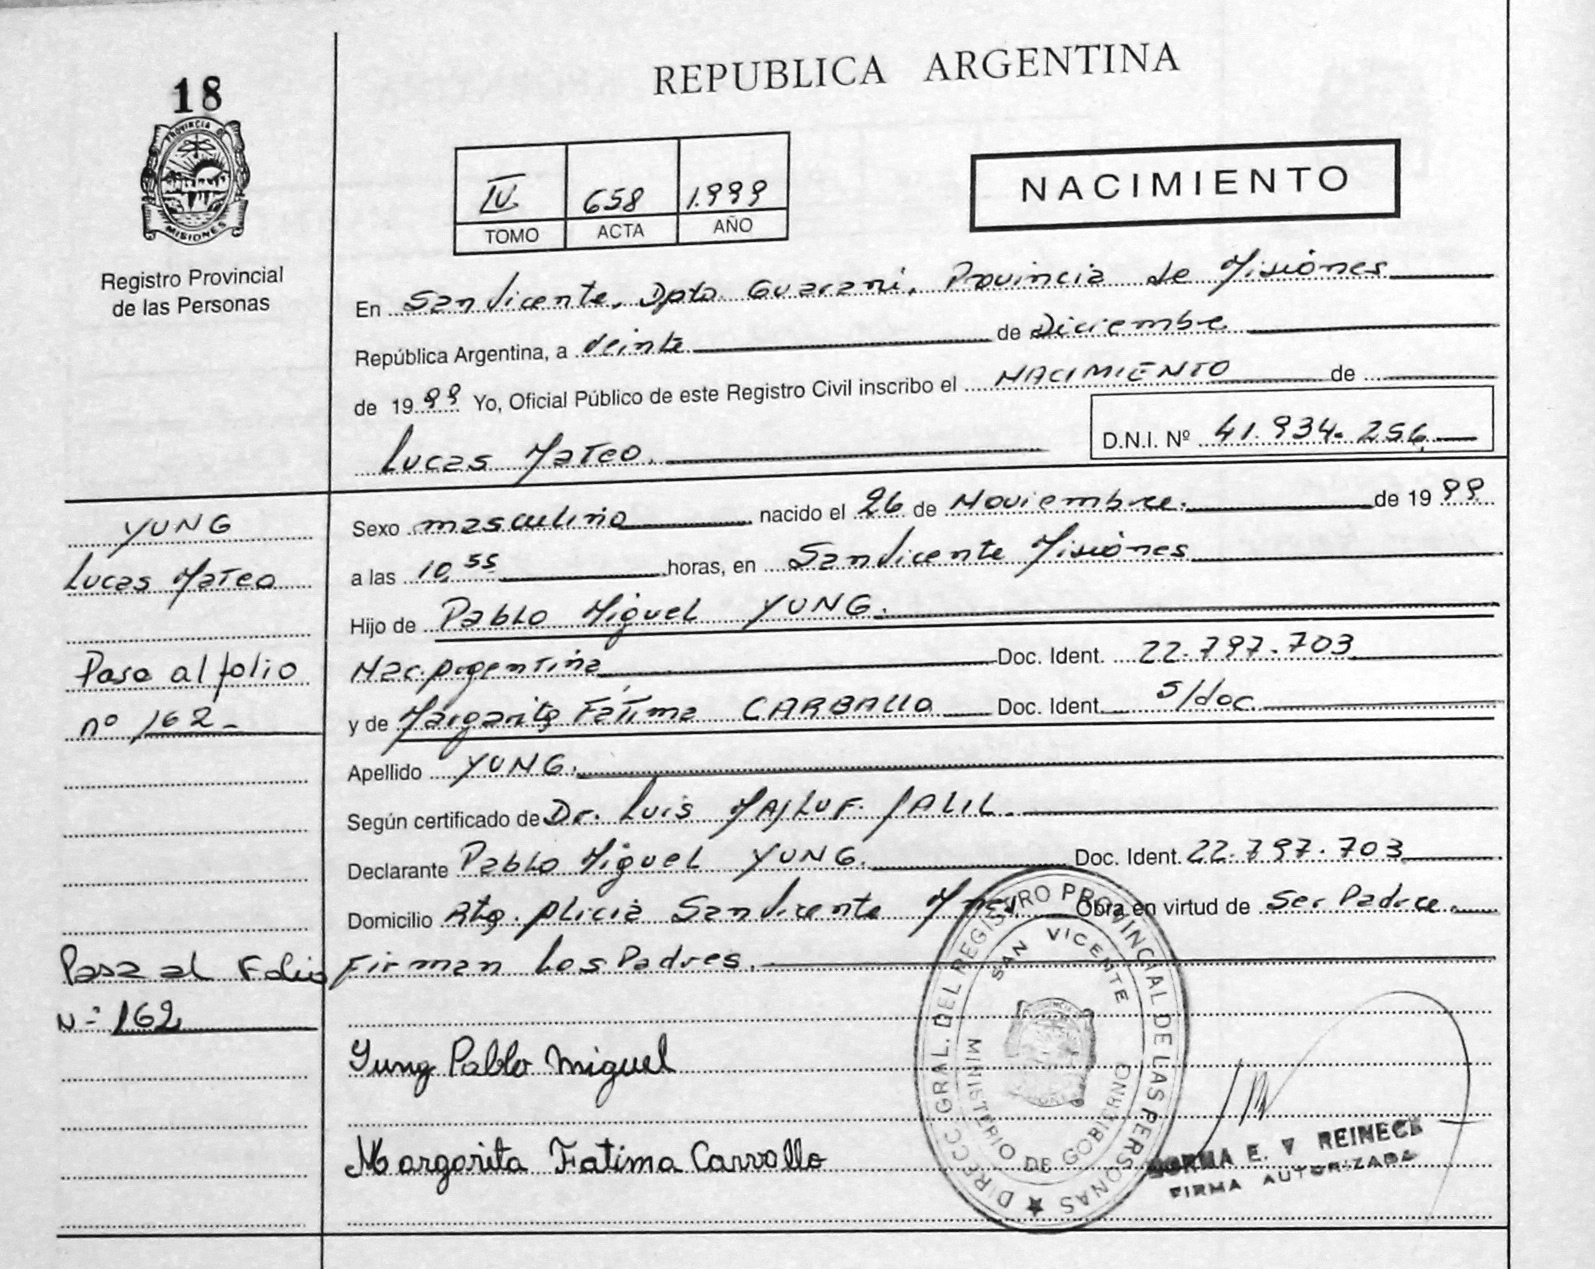 18
PROVINCIA DE
MISIONES
Registro Provincial
de las Personas
REPUBLICA ARGENTINA
IV 658 1.999
TOMO ACTA AÑO
NACIMIENTO
En San Vicente, Dpto. Guarani, Provincia de Misiones
República Argentina, a veinte de Diciembre
de 1999 Yo, Oficial Público de este Registro Civil inscribo el NACIMIENTO de
Lucas Mateo. D.N.I. Nº 41.934.256
YUNG
Lucas Mateo
Pasa al folio
nº 162-
Pasa al Folio
N- 162
Sexo masculino nacido el 26 de Noviembre. de 1999
a las 10 55 horas, en San Vicente Misiones
Hijo de Pablo Miguel YUNG.
Nac. Argentina Doc. Ident. 22.797.703
y de Margarita Fátima CARBALLO Doc. Ident. s/doc.
Apellido YUNG.
Según certificado de Dr. Luis MAJLUF JALIL.
Declarante Pablo Miguel YUNG. Doc. Ident. 22.797.703
Domicilio Alicia San Vicente Mnes. Obra en virtud de Ser Padre.
Firman Los Padres.
Yung Pablo Miguel
Margarita Fatima Carvallo
DIRECC. GRAL. DEL REGISTRO PROVINCIAL DE LAS PERSONAS
SAN VICENTE
MINISTERIO DE GOBIERNO
NORMA E. V REINECK
FIRMA AUTORIZADA